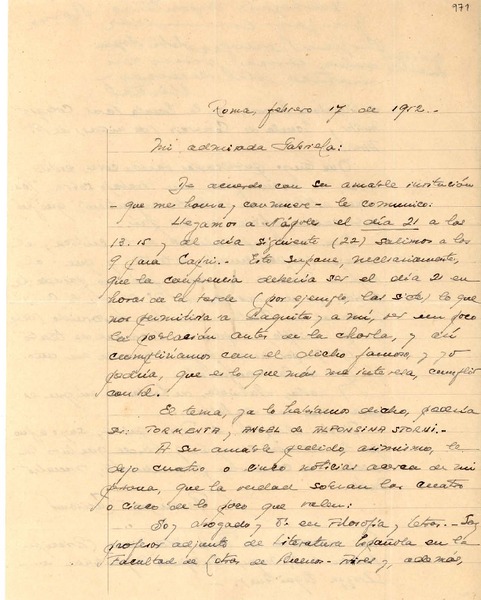 971
Roma, febrero 17 de 1952.-
Mi admirada Gabriela:
De acuerdo con su amable invitación
- que me honra y conmueve - le comunico:
Llegamos a Nápoles el día 21 a las
13.15 y al día siguiente (22) salimos a las
9 para Capri.- Esto supone, necesariamente,
que la conferencia debería ser el día 21 en
horas de la tarde (por ejemplo, las siete) lo que
nos permitiría a Laquita y a mí, ver un poco
la población antes de la charla, y así
cumpliríamos con el dicho famoso, y yo
podría, que es lo que más me interesa, cumplir
con Ud.
El tema, ya lo habíamos dicho, podría
ser: TORMENTA y ANGEL de ALFONSINA STORNI.-
A su amable pedido, asimismo, le
dejo cuatro o cinco noticias acerca de mi
persona, que la verdad sobran las cuatro
o cinco de lo poco que valen:
Soy abogado y Dr. en Filosofía y Letras.- Soy
profesor adjunto de Literatura Española en la
Facultad de Letras de Buenos-Aires y, además,